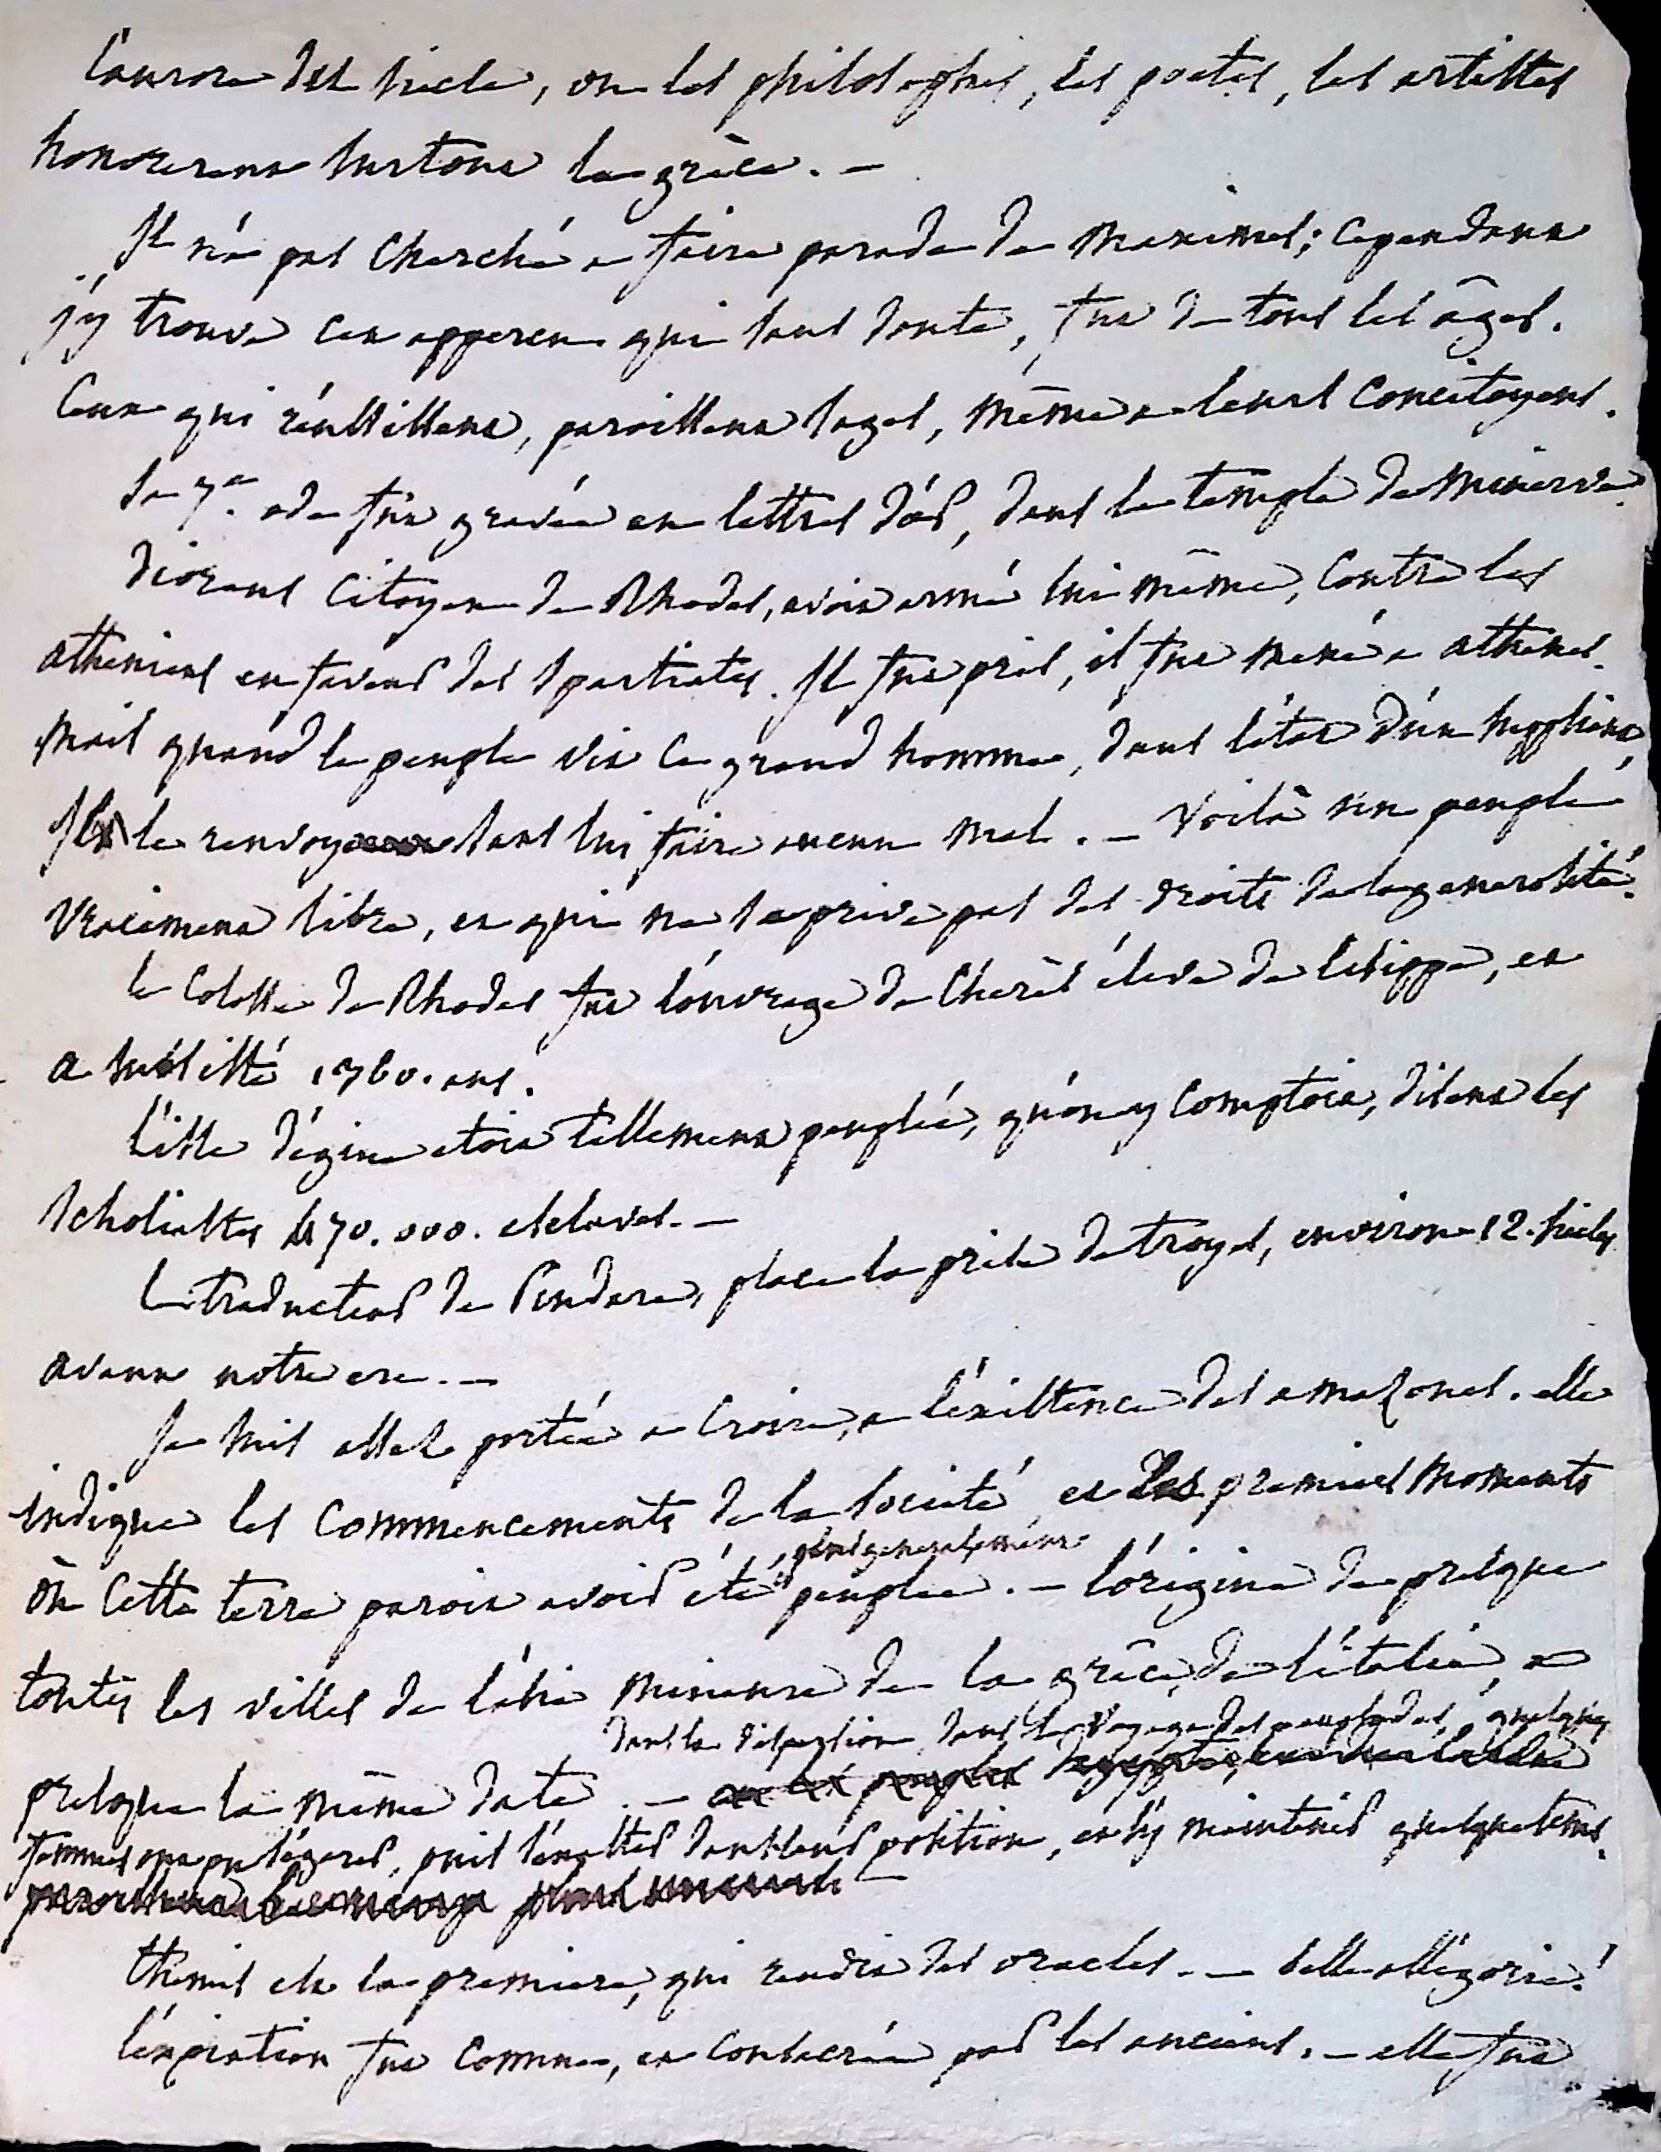 l'aurore des siecle, ou les philosophes, les poetes, les artistes
honorerent surtout la grèce. —
Il n'a pas cherché a faire parade de maximes; cependant
j'y trouve cet apperçu qui sans doute, fut de tous les âges.
Ceux qui réussissent, paroissent sages, même a leurs concitoyens.
la 7e. ode fut gravée en lettres d'or, dans le temple de Minerve.
diorans citoyen de Rhodes, avoit armé lui même, contre les
atheniens en faveur des spartiates. Il fut pris, il fut mené a athenes.
mais quand le peuple vit ce grand homme, dans l'état d'un suppliant,
Il le renvoya sans lui faire aucun mal. — Voilà un peuple
vraiment libre, et qui ne se prive pas des droits de la generosité.
le Colosse de Rhodes fut l'ouvrage de Charès éleve de lisippe, et
a subsisté 1360. ans.
L'isle d'égine etoit tellement peuplée, qu'on y comptoit, disent les
scholiastes 470.000. esclaves. —
le traducteur de Pindare, place la prise de troyes, environ 12. siecles
avant notre ere. —
Je suis assez portée a croire, a l'existence des amazones. elle
indique les commencements de la societé, et les premiers moments
où cette terre paroit avoir été plus generalement peuplée. — l'origine de presque
toutes les villes de l'asie mineure de la grêce, de l'italie, a
presque la même date. — dans la dispersion, dans le voyage des peuplades, quelques
femmes ont pu s'égarer, puis s'exalter dans leur position, et s'y maintenir quelque tems.
themis est la premiere, qui rendit des oracles. — belle allégorie!
l'expiation fut connue, et consacrée par les anciens. — elle fut